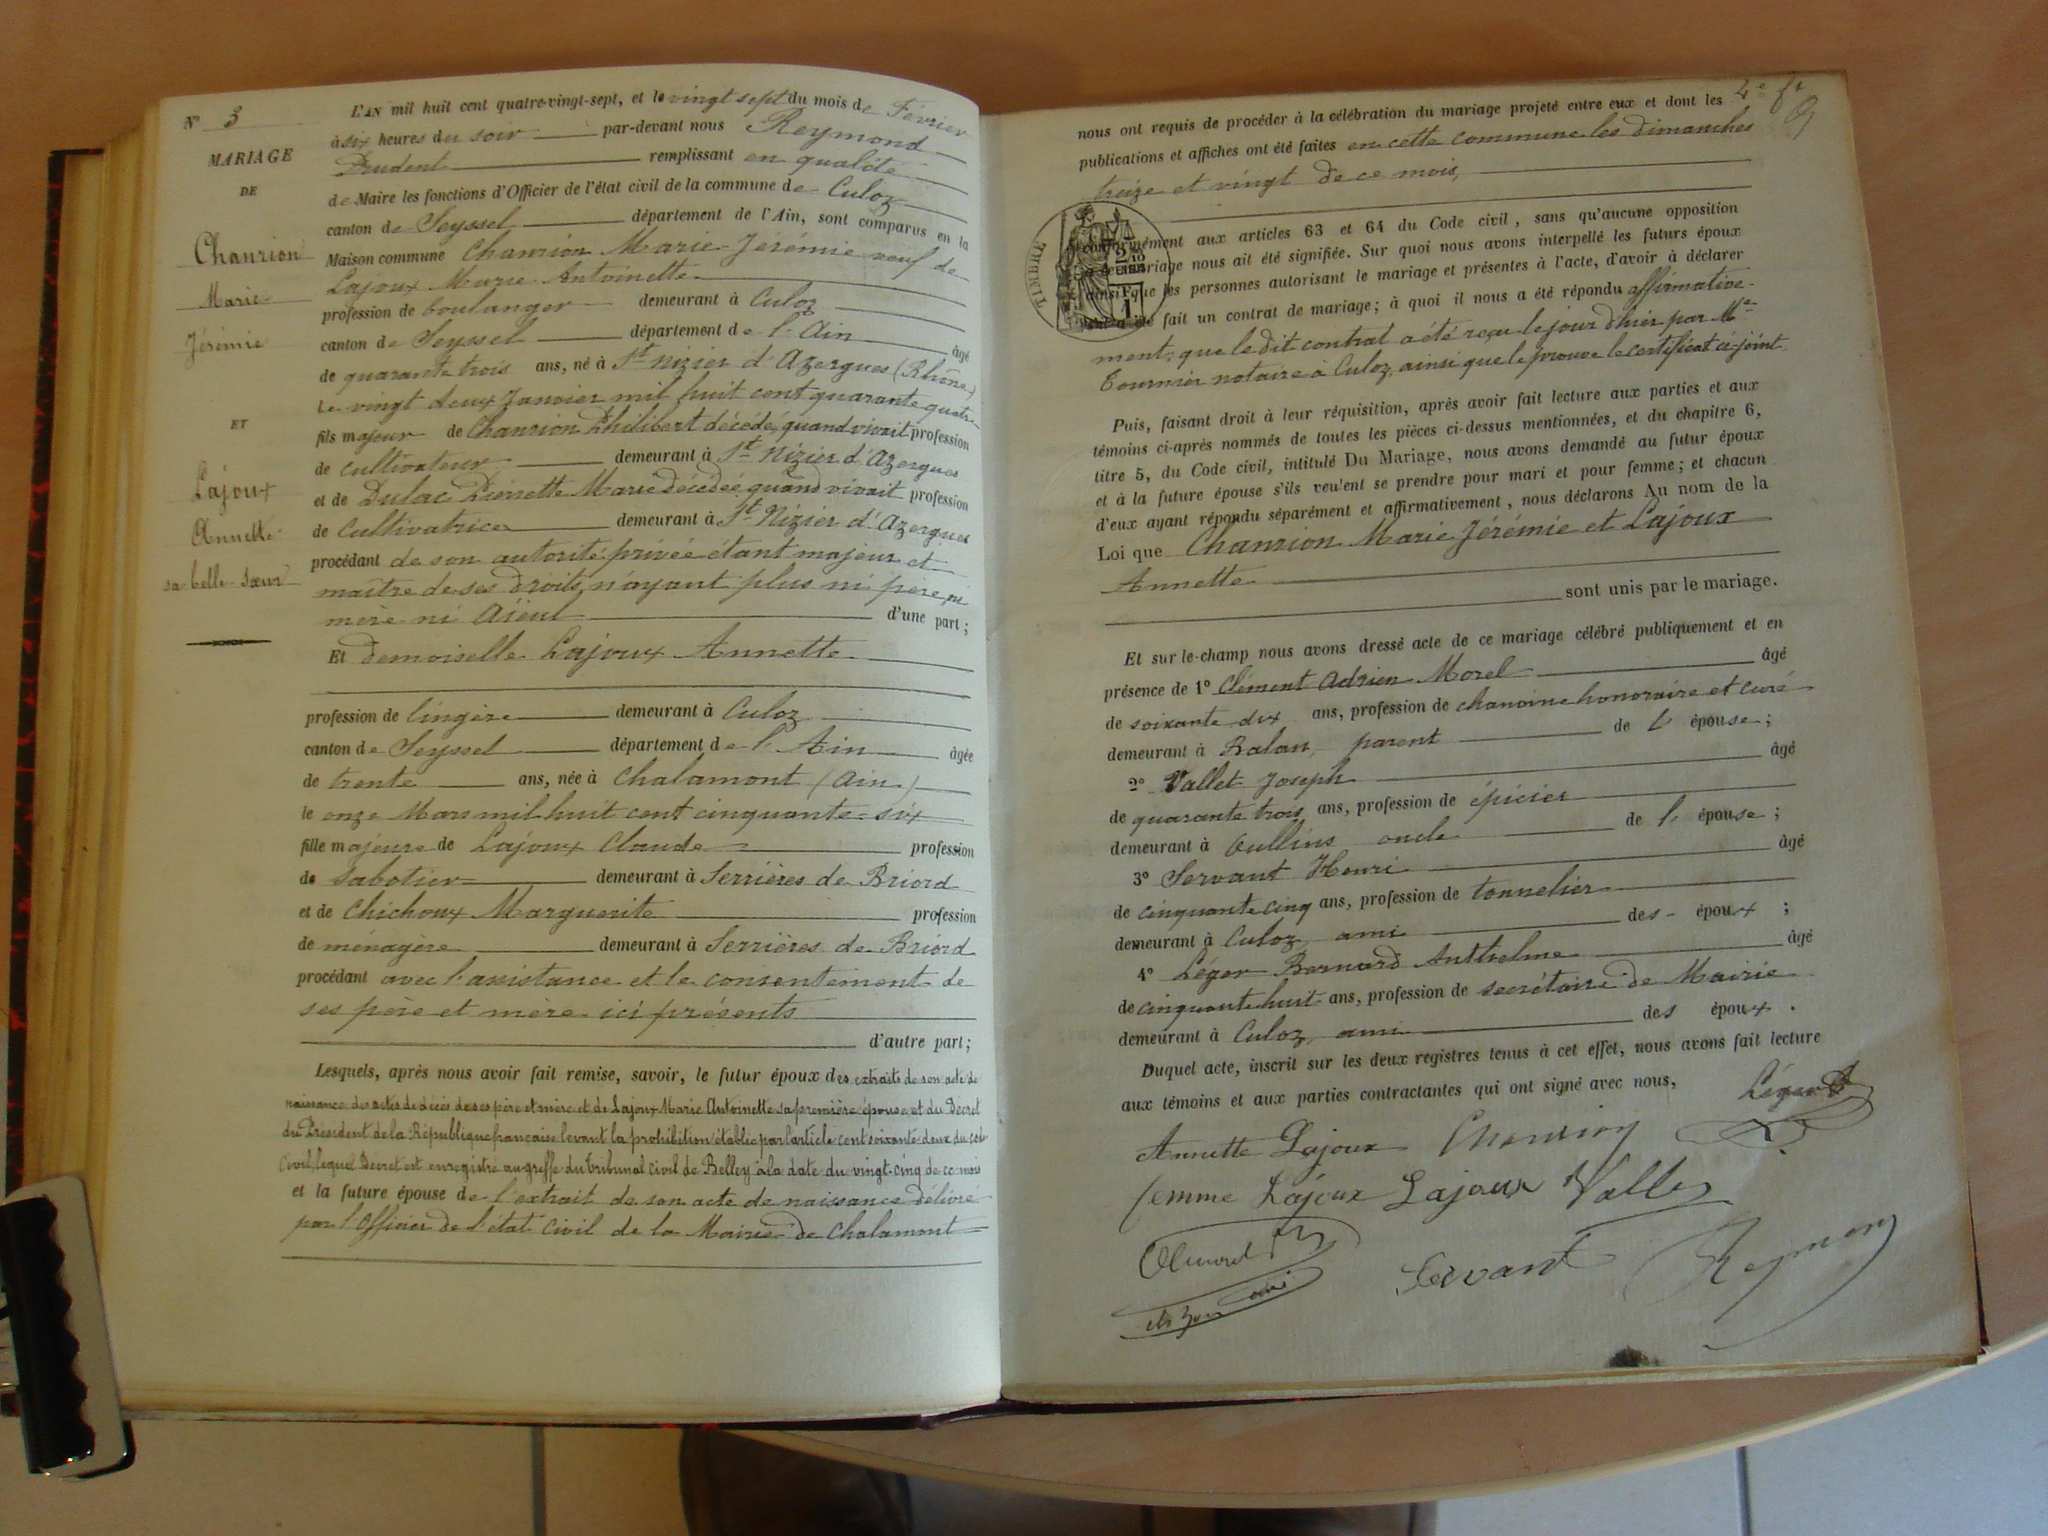 N° 3
MARIAGE
DE
Chanrion
Marie
Jérémie
ET
Lajoux
Annette
sa belle-sœur
L'AN mil huit cent quatre-vingt-sept, et le vingt sept du mois de Février
à six heures du soir par-devant nous Reymond
Prudent remplissant en qualité
de Maire les fonctions d'Officier de l'état civil de la commune de Culoz
canton de Seyssel département de l'Ain, sont comparus en la
Maison commune Chanrion Marie-Jérémie veuf de
Lajoux Marie Antoinette
profession de boulanger demeurant à Culoz
canton de Seyssel département de l'Ain âgé
de quarante trois ans, né à St Nizier d'Azergues (Rhône)
le vingt deux Janvier mil huit cent quarante quatre
fils majeur de Chanrion Philibert décédé, quand vivait profession
de cultivateur demeurant à St Nizier d'Azergues
et de Dulac Pierrette Marie décédée quand vivait profession
de cultivatrice demeurant à St Nizier d'Azergues
procédant de son autorité privée étant majeur et
maître de ses droits, n'ayant plus ni père, ni
mère ni Aïeul d'une part;
Et demoiselle Lajoux Annette
profession de lingère demeurant à Culoz
canton de Seyssel département de l'Ain âgée
de trente ans, née à Chalamont (Ain)
le onze Mars mil huit cent cinquante-six
fille majeure de Lajoux Claude profession
de sabotier demeurant à Serrières de Briord
et de Chichoux Marguerite profession
de ménagère demeurant à Serrières de Briord
procédant avec l'assistance et le consentement de
ses père et mère ici présents
d'autre part;
Lesquels, après nous avoir fait remise, savoir, le futur époux des extraits de son acte de
naissance des actes de décès de ses père et mère et de Lajoux Marie Antoinette sa première épouse et du Décret
du Président de la République française levant la prohibition établie par l'article cent soixante deux du code
Civil, lequel Décret est enregistré au greffe du tribunal civil de Belley à la date du vingt-cinq de ce mois
et la future épouse de l'extrait de son acte de naissance délivré
par l'Officier de l'état civil de la Mairie de Chalamont
nous ont requis de procéder à la célébration du mariage projeté entre eux et dont les
publications et affiches ont été faites en cette commune les dimanches
treize et vingt de ce mois,
TIMBRE
conformément aux articles 63 et 64 du Code civil, sans qu'aucune opposition
mariage nous ait été signifiée. Sur quoi nous avons interpellé les futurs époux
ainsi que les personnes autorisant le mariage et présentes à l'acte, d'avoir à déclarer
fait un contrat de mariage; à quoi il nous a été répondu affirmative-
ment; que le dit contrat a été reçu le jour d'hier par Me
Tournier notaire à Culoz, ainsi que le prouve le certificat ci-joint.
Puis, faisant droit à leur réquisition, après avoir fait lecture aux parties et aux
témoins ci-après nommés de toutes les pièces ci-dessus mentionnées, et du chapitre 6,
titre 5, du Code civil, intitulé Du Mariage, nous avons demandé au futur époux
et à la future épouse s'ils veulent se prendre pour mari et pour femme; et chacun
d'eux ayant répondu séparément et affirmativement, nous déclarons Au nom de la
Loi que Chanrion Marie Jérémie et Lajoux
Annette
sont unis par le mariage.
Et sur-le-champ nous avons dressé acte de ce mariage célébré publiquement et en
présence de 1° Clément Adrien Morel âgé
de soixante dix ans, profession de chanoine honoraire et curé
demeurant à Balan, parent de l'épouse;
2° Vallet Joseph âgé
de quarante trois ans, profession de épicier
demeurant à Oullins oncle de l'épouse;
3° Servant Henri âgé
de cinquante cinq ans, profession de tonnelier
demeurant à Culoz, ami des époux;
4° Léger Bernard Anthelme âgé
de cinquante huit ans, profession de secrétaire de Mairie
demeurant à Culoz, ami des époux.
Duquel acte, inscrit sur les deux registres tenus à cet effet, nous avons fait lecture
aux témoins et aux parties contractantes qui ont signé avec nous,
Léger B
Annette Lajoux Chanrion
femme Lajoux Lajoux Vallet
Servant Reymond